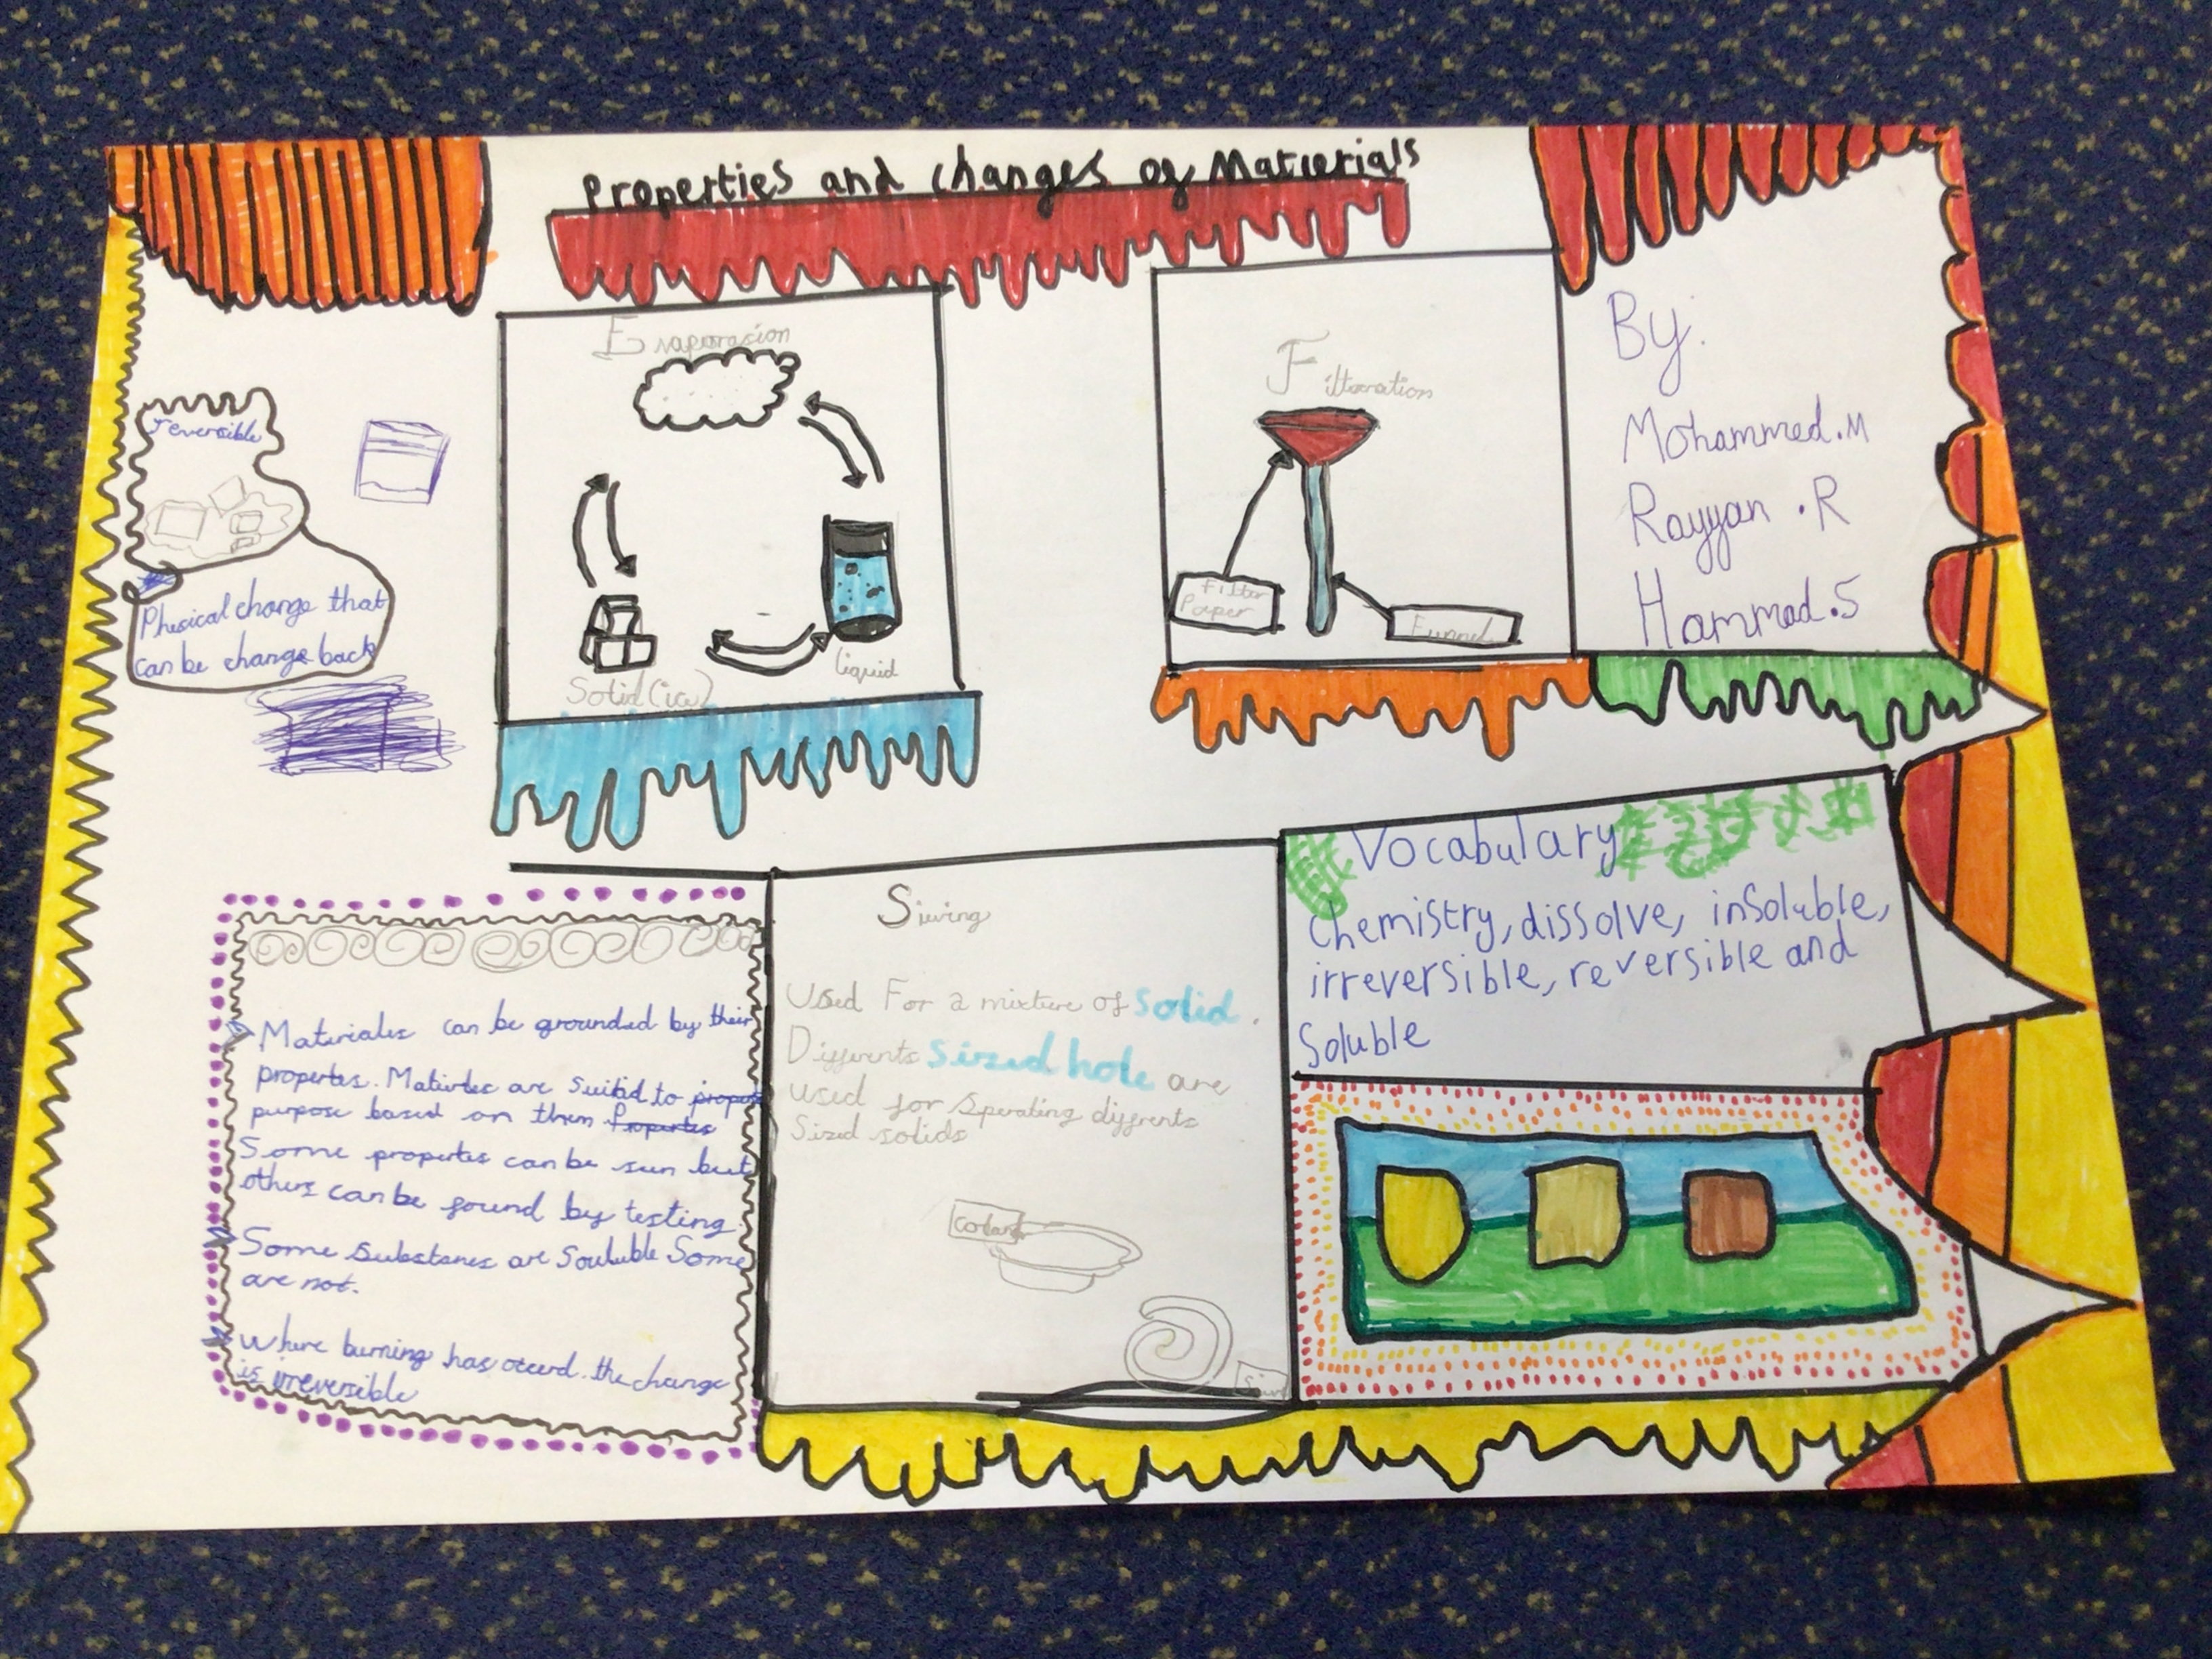 Properties and changes of Matierials
Evaporasion
Solid (ice)
liquid
Filtteration
Filter
Paper
Funnel
By:
Mohammed.M
Rayyan .R
Hammad.S
reversible
Phesical change that
can be change back
Materiales can be grounded by their
propertes. Matirtes are suitid to propos
purpose based on them Propertes
Some propertes can be seen but
others can be found by testing.
Some Substanes are Souluble Some
are not.
Where burning has occerd. the change
is irreversible
Sieving
Used For a mixture of solid.
Differents sized hole are
used for Sperating differents
Sized solids
Vocabulary
Chemistry, dissolve, insoluble,
irreversible, reversible and
Soluble